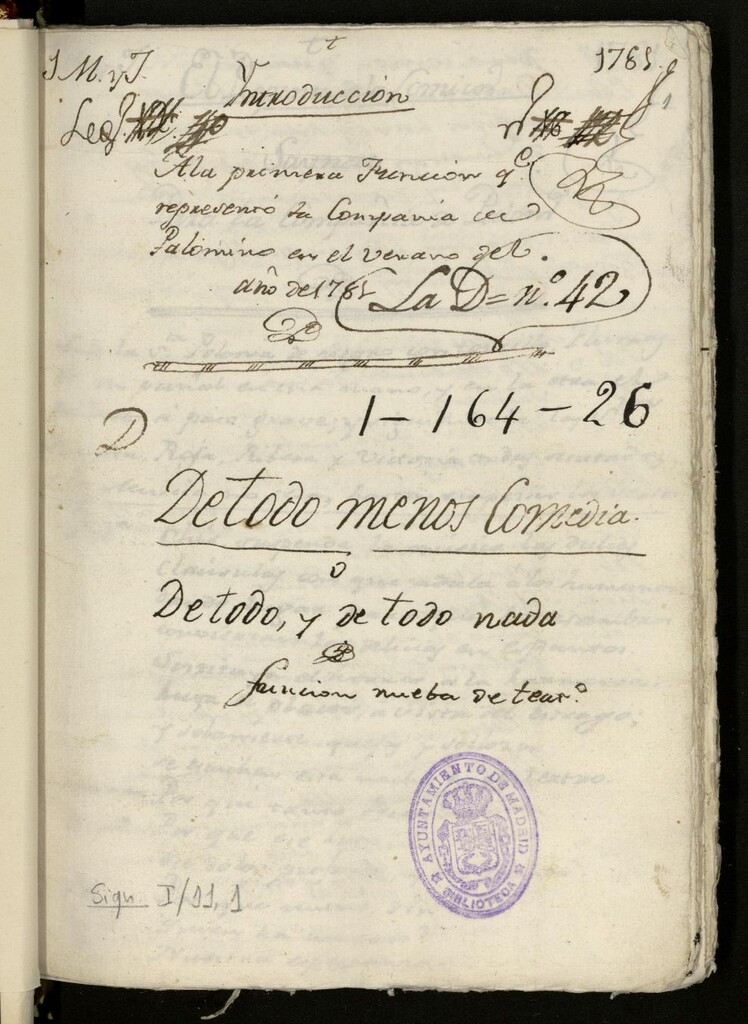 J. M. y J.
1781.
Introducción
Leg.
nº
A la primera Funcion q.e
representó la Compañia de
Palomino en el Verano del
año de 1781
La D = nº. 42
1-164-26
D
De todo menos Comedia.
o
De todo, y de todo nada
funcion nueba de teat.º
AYUNTAMIENTO DE MADRID
BIBLIOTECA
Sign. I/11, 1